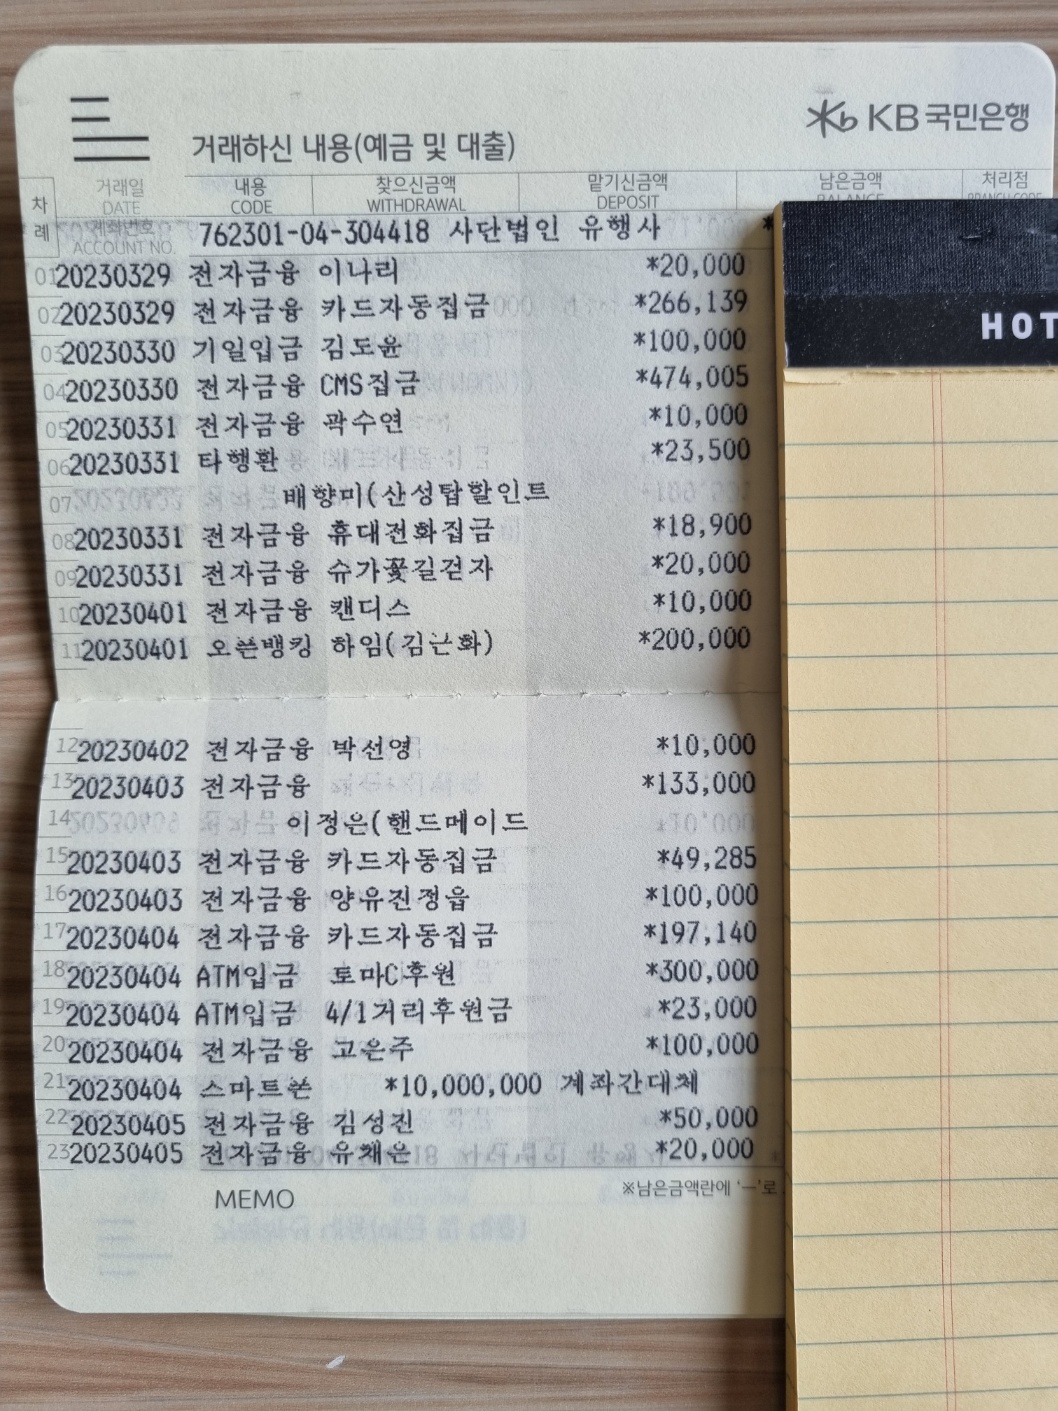 KB국민은행
거래하신 내용(예금 및 대출)
차례 거래일 내용 찾으신금액 맡기신금액 남은금액 처리점
DATE CODE WITHDRAWAL DEPOSIT BALANCE BRANCH CODE
계좌번호
ACCOUNT NO. 762301-04-304418 사단법인 유행사 *
01 20230329 전자금융 이나리 *20,000
02 20230329 전자금융 카드자동집금 *266,139
03 20230330 기일입금 김도윤 *100,000
04 20230330 전자금융 CMS집금 *474,005
05 20230331 전자금융 곽수연 *10,000
06 20230331 타행환 *23,500
07 배향미(산성탑할인트
08 20230331 전자금융 휴대전화집금 *18,900
09 20230331 전자금융 슈가꽃길걷자 *20,000
10 20230401 전자금융 캔디스 *10,000
11 20230401 오픈뱅킹 하임(김근화) *200,000
12 20230402 전자금융 박선영 *10,000
13 20230403 전자금융 *133,000
14 이정은(핸드메이드
15 20230403 전자금융 카드자동집금 *49,285
16 20230403 전자금융 양유진정읍 *100,000
17 20230404 전자금융 카드자동집금 *197,140
18 20230404 ATM입금 토마C후원 *300,000
19 20230404 ATM입금 4/1거리후원금 *23,000
20 20230404 전자금융 고은주 *100,000
21 20230404 스마트폰 *10,000,000 계좌간대체
22 20230405 전자금융 김성진 *50,000
23 20230405 전자금융 유채은 *20,000
MEMO
※남은금액란에 '-'로
HOT